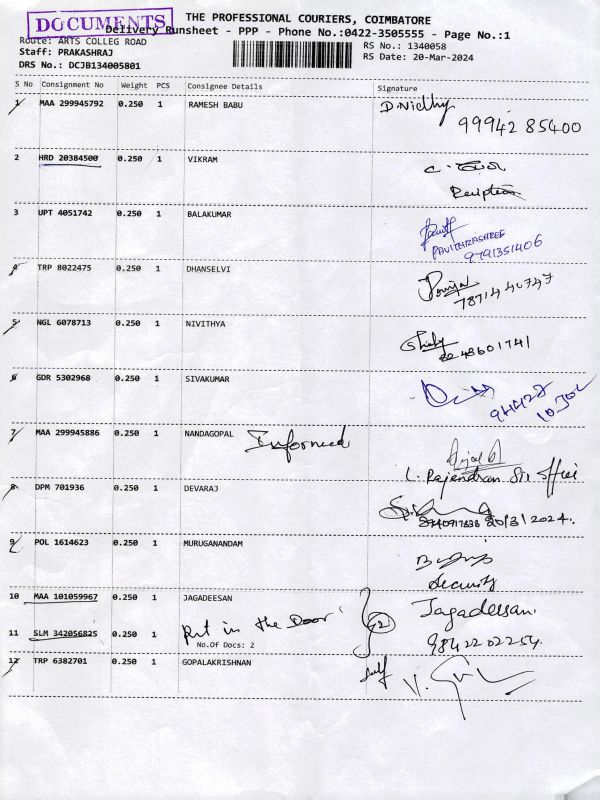 DOCUMENTS
THE PROFESSIONAL COURIERS, COIMBATORE
Delivery Runsheet - PPP - Phone No.:0422-3505555 - Page No.:1
Route: ARTS COLLEG ROAD
RS No.: 1340058
Staff: PRAKASHRAJ
RS Date: 20-Mar-2024
DRS No.: DCJB134005801
S No Consignment No Weight PCS Consignee Details Signature
1 MAA 299945792 0.250 1 RAMESH BABU D. Nidhy
99942 85400
2 HRD 20384500 0.250 1 VIKRAM
Reception
3 UPT 4051742 0.250 1 BALAKUMAR
PAVITHRASHREE
9791351406
4 TRP 8022475 0.250 1 DHANSELVI
78714 40747
5 NGL 6078713 0.250 1 NIVITHYA
43601741
6 GDR 5302968 0.250 1 SIVAKUMAR
7 MAA 299945886 0.250 1 NANDAGOPAL Informed
L. Rajendran
8 DPM 701936 0.250 1 DEVARAJ
20/3/2024.
9 POL 1614623 0.250 1 MURUGANANDAM
Security
10 MAA 101059967 0.250 1 JAGADEESAN Jagadeesan.
11 SLM 342056825 0.250 1 Put in the Door (2) 98422 02254.
No.Of Docs: 2
12 TRP 6382701 0.250 1 GOPALAKRISHNAN self